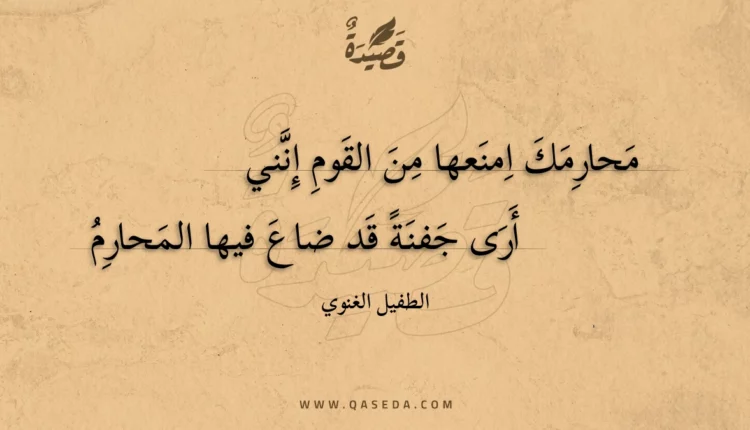 قَصِيدَةٌ
مَحارِمَكَ اِمنَعها مِنَ القَومِ إِنَّني
أَرَى جَفنَةً قَد ضاعَ فيها المَحارِمُ
الطفيل الغنوي
WWW.QASEDA.COM